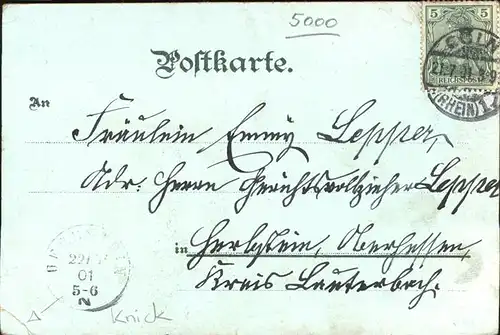 5000
5 5
REICHSPOST
CÖLN
21.7.01
(RHEIN) 1
Postkarte.
An
Fräulein Emmy Lepper,
Adr. Herrn Gerichtsvollzieher Lepper
in Herbstein, Oberhessen,
Kreis Lauterbach.
22/7
01
5-6
N
Knick